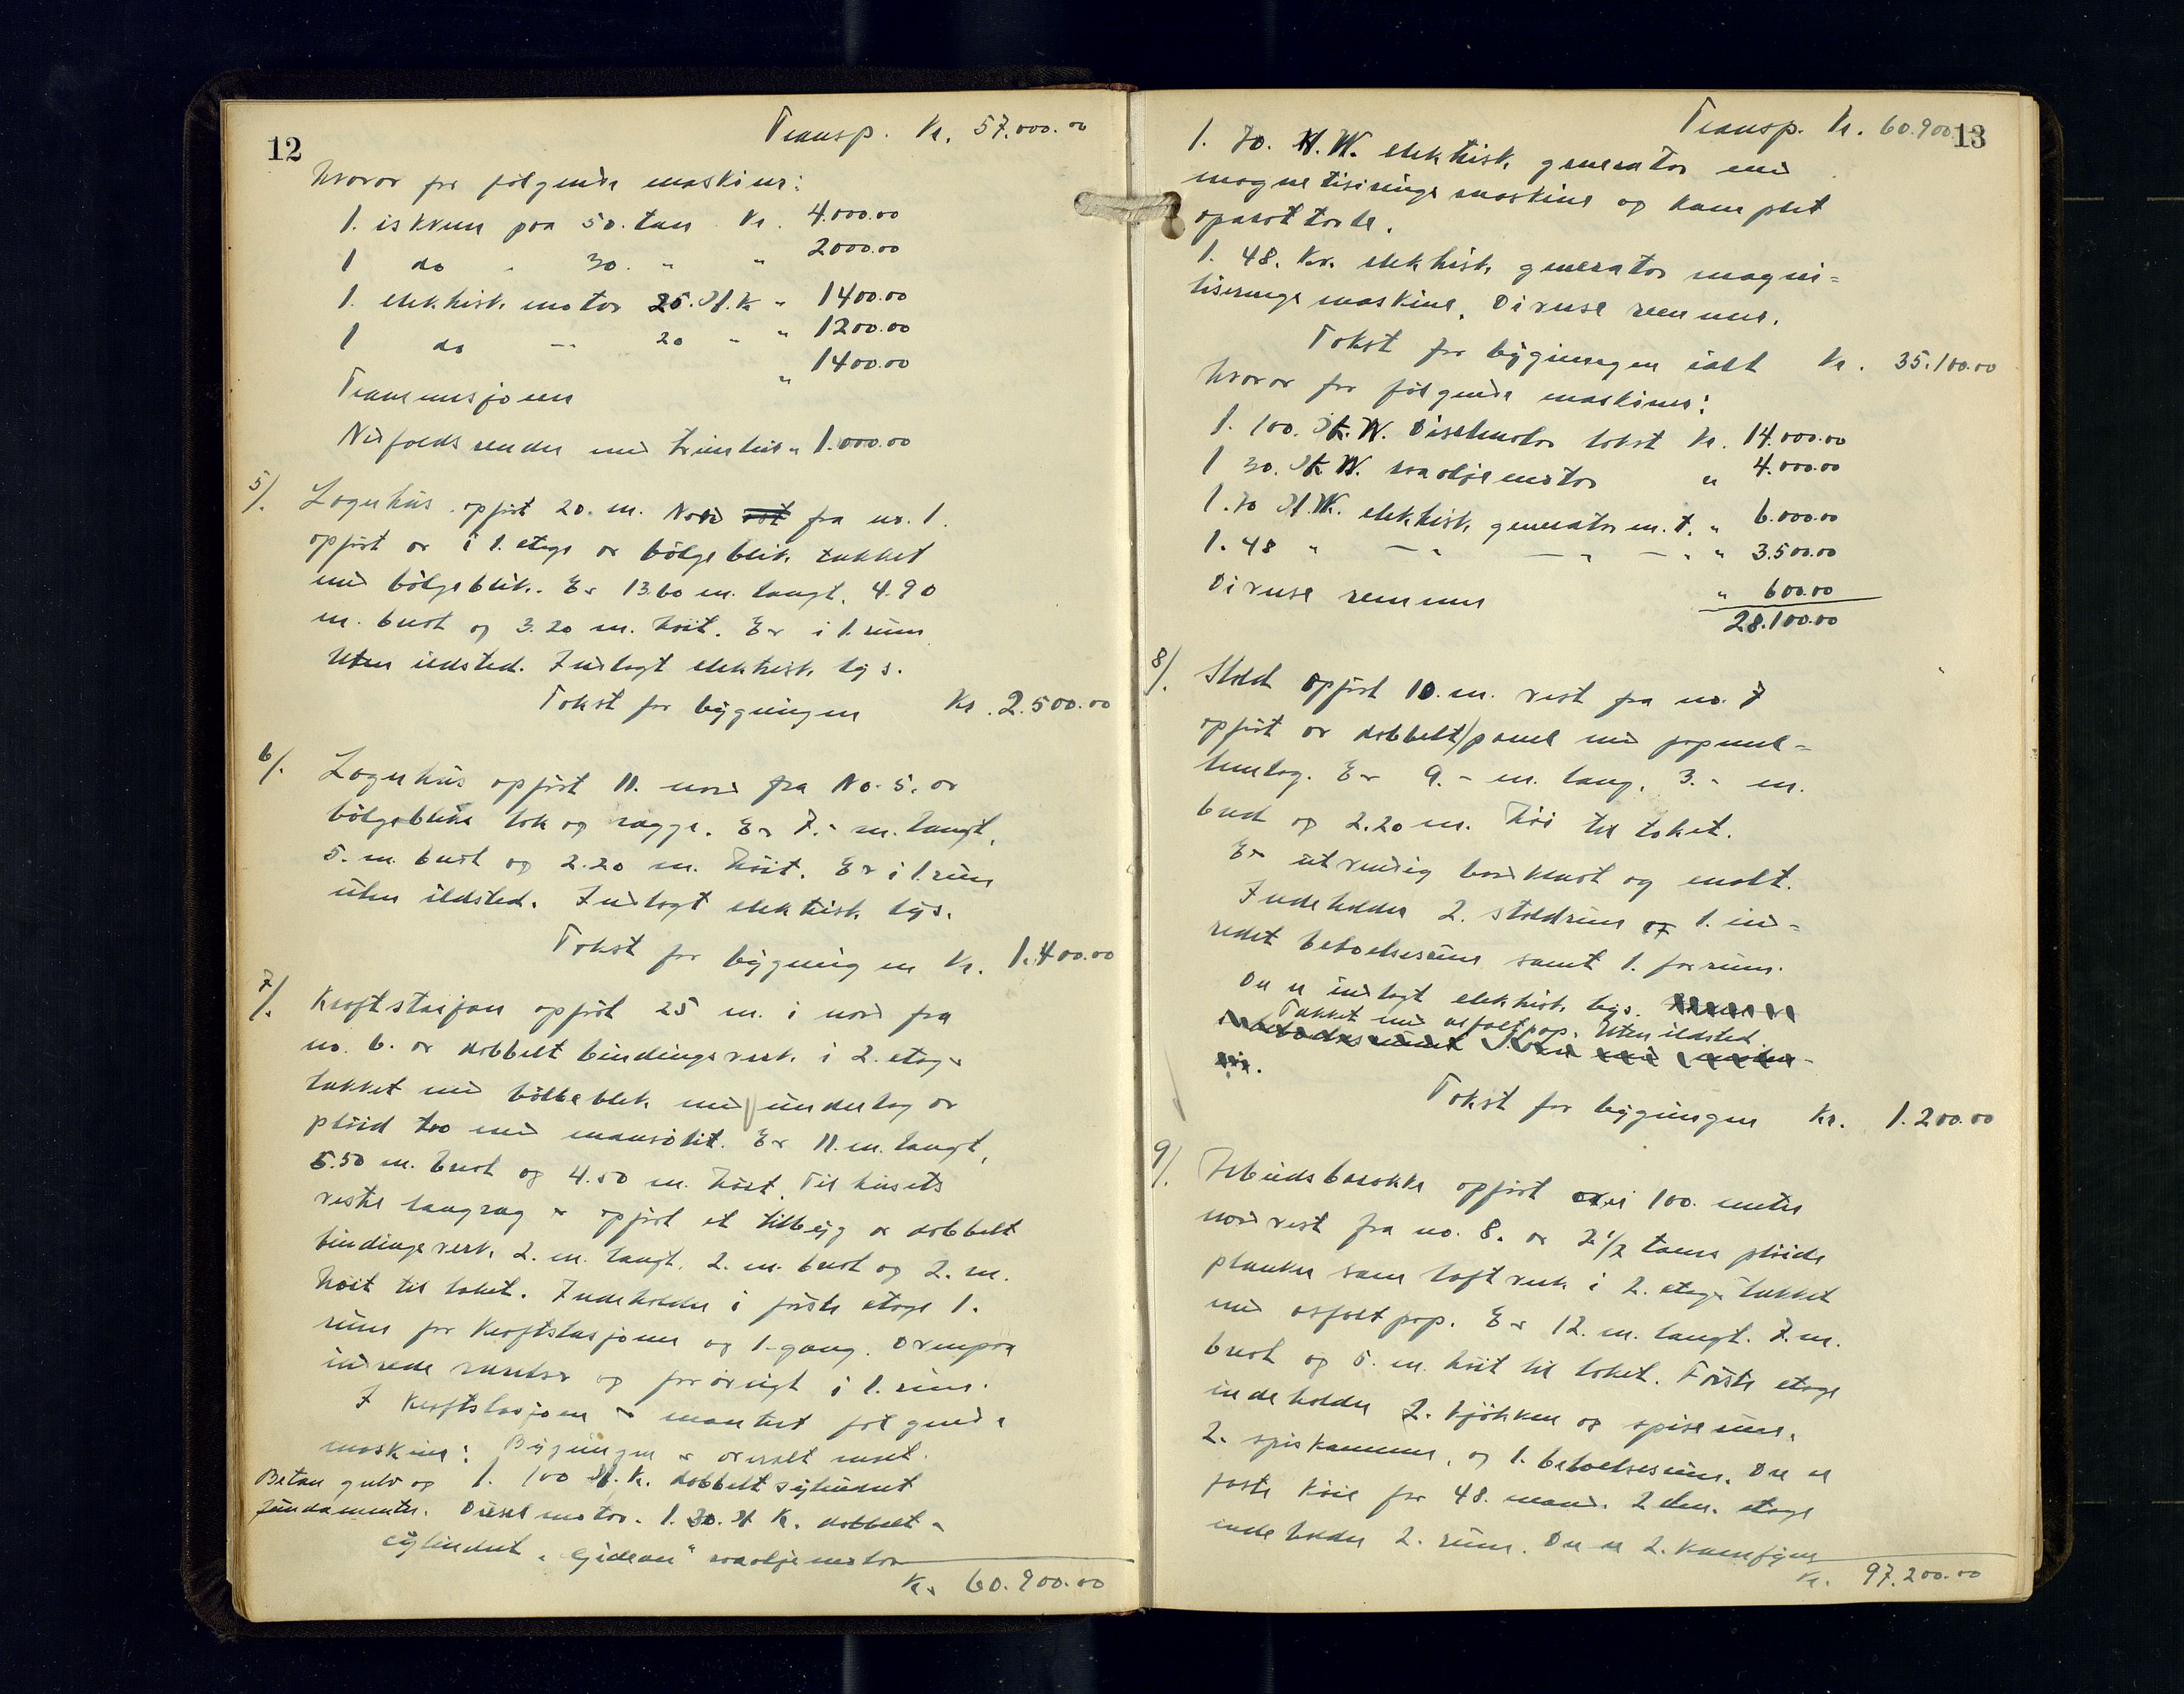 12
Transp. Kr. 57.000.00
hvorav for følgende maskiner:
1. iskvern paa 50. ton Kr. 4.000.00
1 do " 30. " " 2000.00
1. elektrisk motor 25. H.K " 1400.00
1 do — 20 " " 1200.00
Transmisjoner " 1400.00
Nedfaldsrender med " 1.000.00
5/. Lagerhus opført 20. m. Nord øst fra no. 1.
opført av i 1. etage av bølgeblik tækket
med bølgeblik. Er 13.60 m. langt, 4.90
m. bredt og 3.20 m. høit. Er i 1. rum
Uten ildsted. Indlagt elektrisk lys.
Takst for bygningen Kr. 2.500.00
6/. Lagerhus opført 11. nord fra No. 5. av
bølgeblikk tak og vægge. Er 7.- m. langt,
5. m. bredt og 2.20 m. høit. Er i 1. rum
uten ildsted. Indlagt elektrisk lys.
Takst for bygningen Kr. 1.400.00
7/. Kraftstasjon opført 25 m. i nord fra
no. 6. av dobbelt bindingsverk i 2. etage
tækket med bølgeblik med underlag av
pløid tro med mansólit. Er 11. m. langt,
5.50 m. bredt og 4.50 m. høit. Til husets
vestre langvæg er opført et tilbyg av dobbelt
bindingsverk 2. m. langt. 2. m. bredt og 2. m.
høit til taket. Indeholder i første etage 1.
rum for Kraftstasjonen og 1. gang. Ovenpaa
indrede værelser og forøvrigt i 1. rum.
I Kraftstasjonen er montert følgende
maskiner: Bygningen er overalt malt.
Betongulv og 1. 100 H.K. dobbeltsylindret
fundamenter. Diesel motor. 1. 30. H K. dobbelt-
cylindret „Gideon" raaoljemotor
Kr. 60.900.00
13
Transp. Kr. 60.900
1. 70. K.W. elektrisk generator med
magnetiserings maskine og komplet
aparattavle.
1. 48. Kv. elektrisk generator magne=
tiserings maskine. Diverse remmer.
Takst for bygningen ialt Kr. 35.100.00
hvorav for følgende maskiner:
1. 100. H.K. Dieselmotor takst Kr. 14.000.00
1 30. H.K. raaoljemotor " 4.000.00
1. 70 K.W. elektrisk generator m. t. " 6.000.00
1. 48 " — " — " — " " 3.500.00
Diverse remmer " 600.00
28.100.00
8/. Stald opført 10. m. vest fra no. 7
opført av dobbelt panel med
Er 9.- m. lang, 3.- m.
bred og 2.20 m. høi til taket.
Er utvendig bordklædt og malt.
Indeholder 2. staldrum og 1. ind=
redet beboelsesrum samt 1. forrum.
Der er indlagt elektrisk lys.
Takket med asfaltpap. Uten ildsted.
Takst for bygningen Kr. 1.200.00
9/. Arbeidsbarakke opført 100. meter
nord vest fra no. 8. av 2 1/2 toms pløide
planker som laftverk i 2. etage tækket
med asfaltpap. Er 12. m. langt. 7. m.
bredt og 5. m. høit til taket. Første etage
indeholder 2. kjøkken og spiserum,
2. spiskammer, og 1. beboelsesrum. Der er
faste køie for 48. mand. 2den. etage
indeholder 2. rum. Der er 2. Komfyrer
Kr. 97.200.00